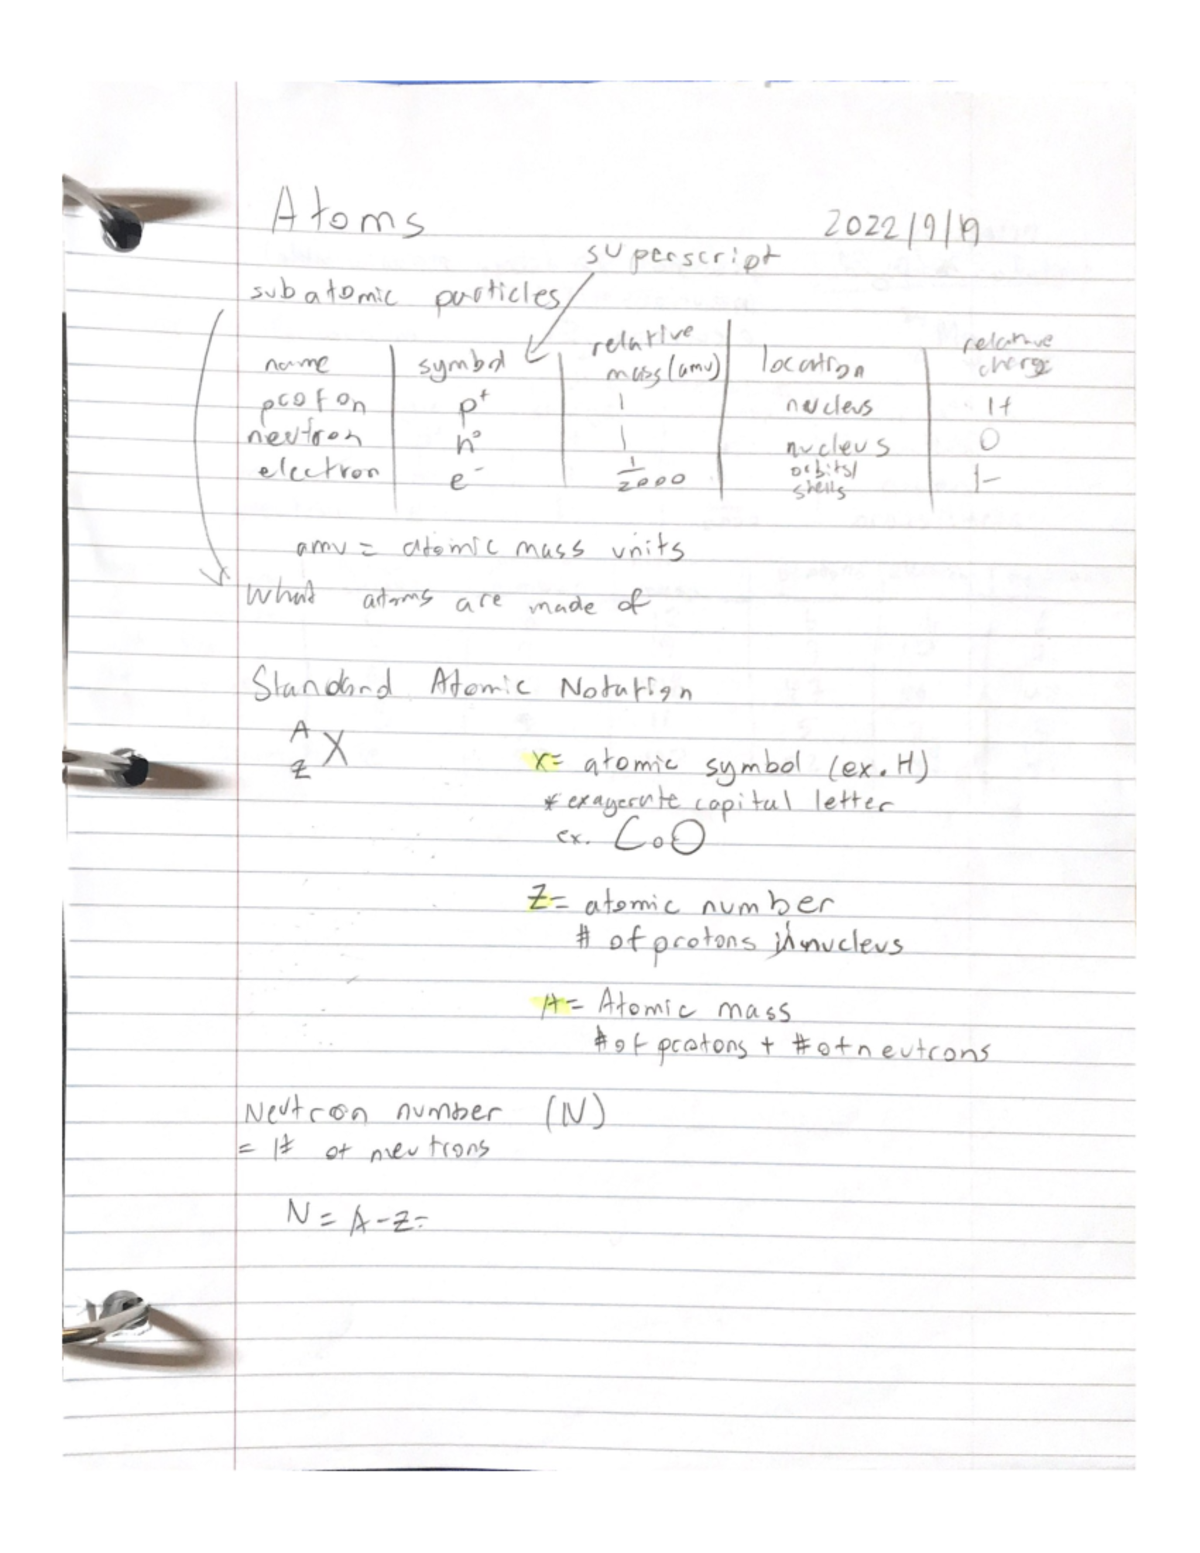 Atoms
2022/9/19
superscript
subatomic particles
name symbol relative mass (amu) location relative charge
proton p⁺ 1 nucleus 1+
neutron n⁰ 1 nucleus 0
electron e⁻ 1/2000 orbits/shells 1-
amu = atomic mass units
What atoms are made of
Standard Atomic Notation
A
Z X
X= atomic symbol (ex. H)
* exagerate capital letter
ex. CoO
Z= atomic number
# of protons in nucleus
A= Atomic mass
# of protons + # of neutrons
Neutron number (N)
= # of neutrons
N = A-Z=